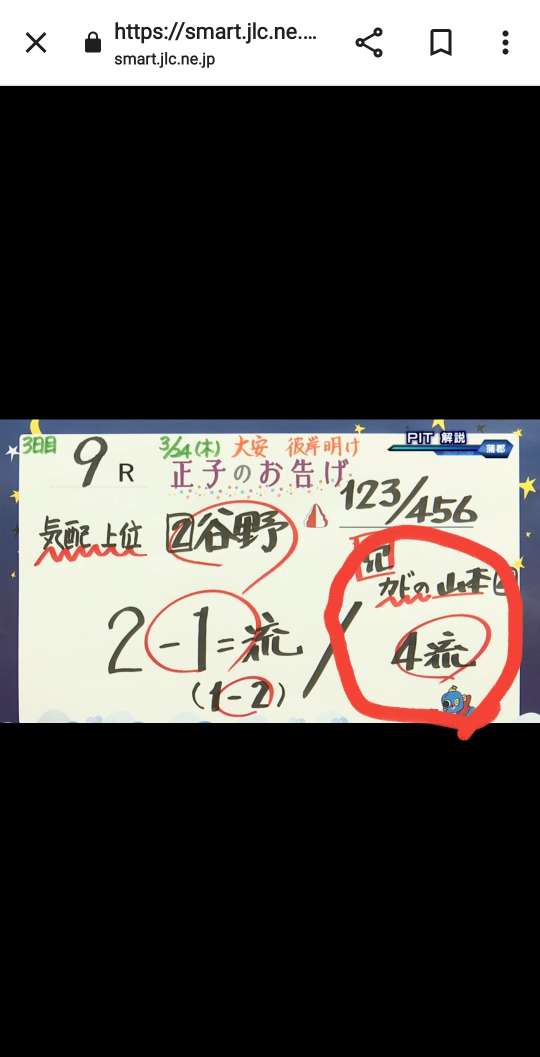 https://smart.jlc.ne....
smart.jlc.ne.jp
3日目 9R 3/24(木) 大安 彼岸明け PIT 解説
正子のお告げ 蒲郡
123/456
気配上位 2谷野
カドの山本
2-1=流 / 4流
(1-2)